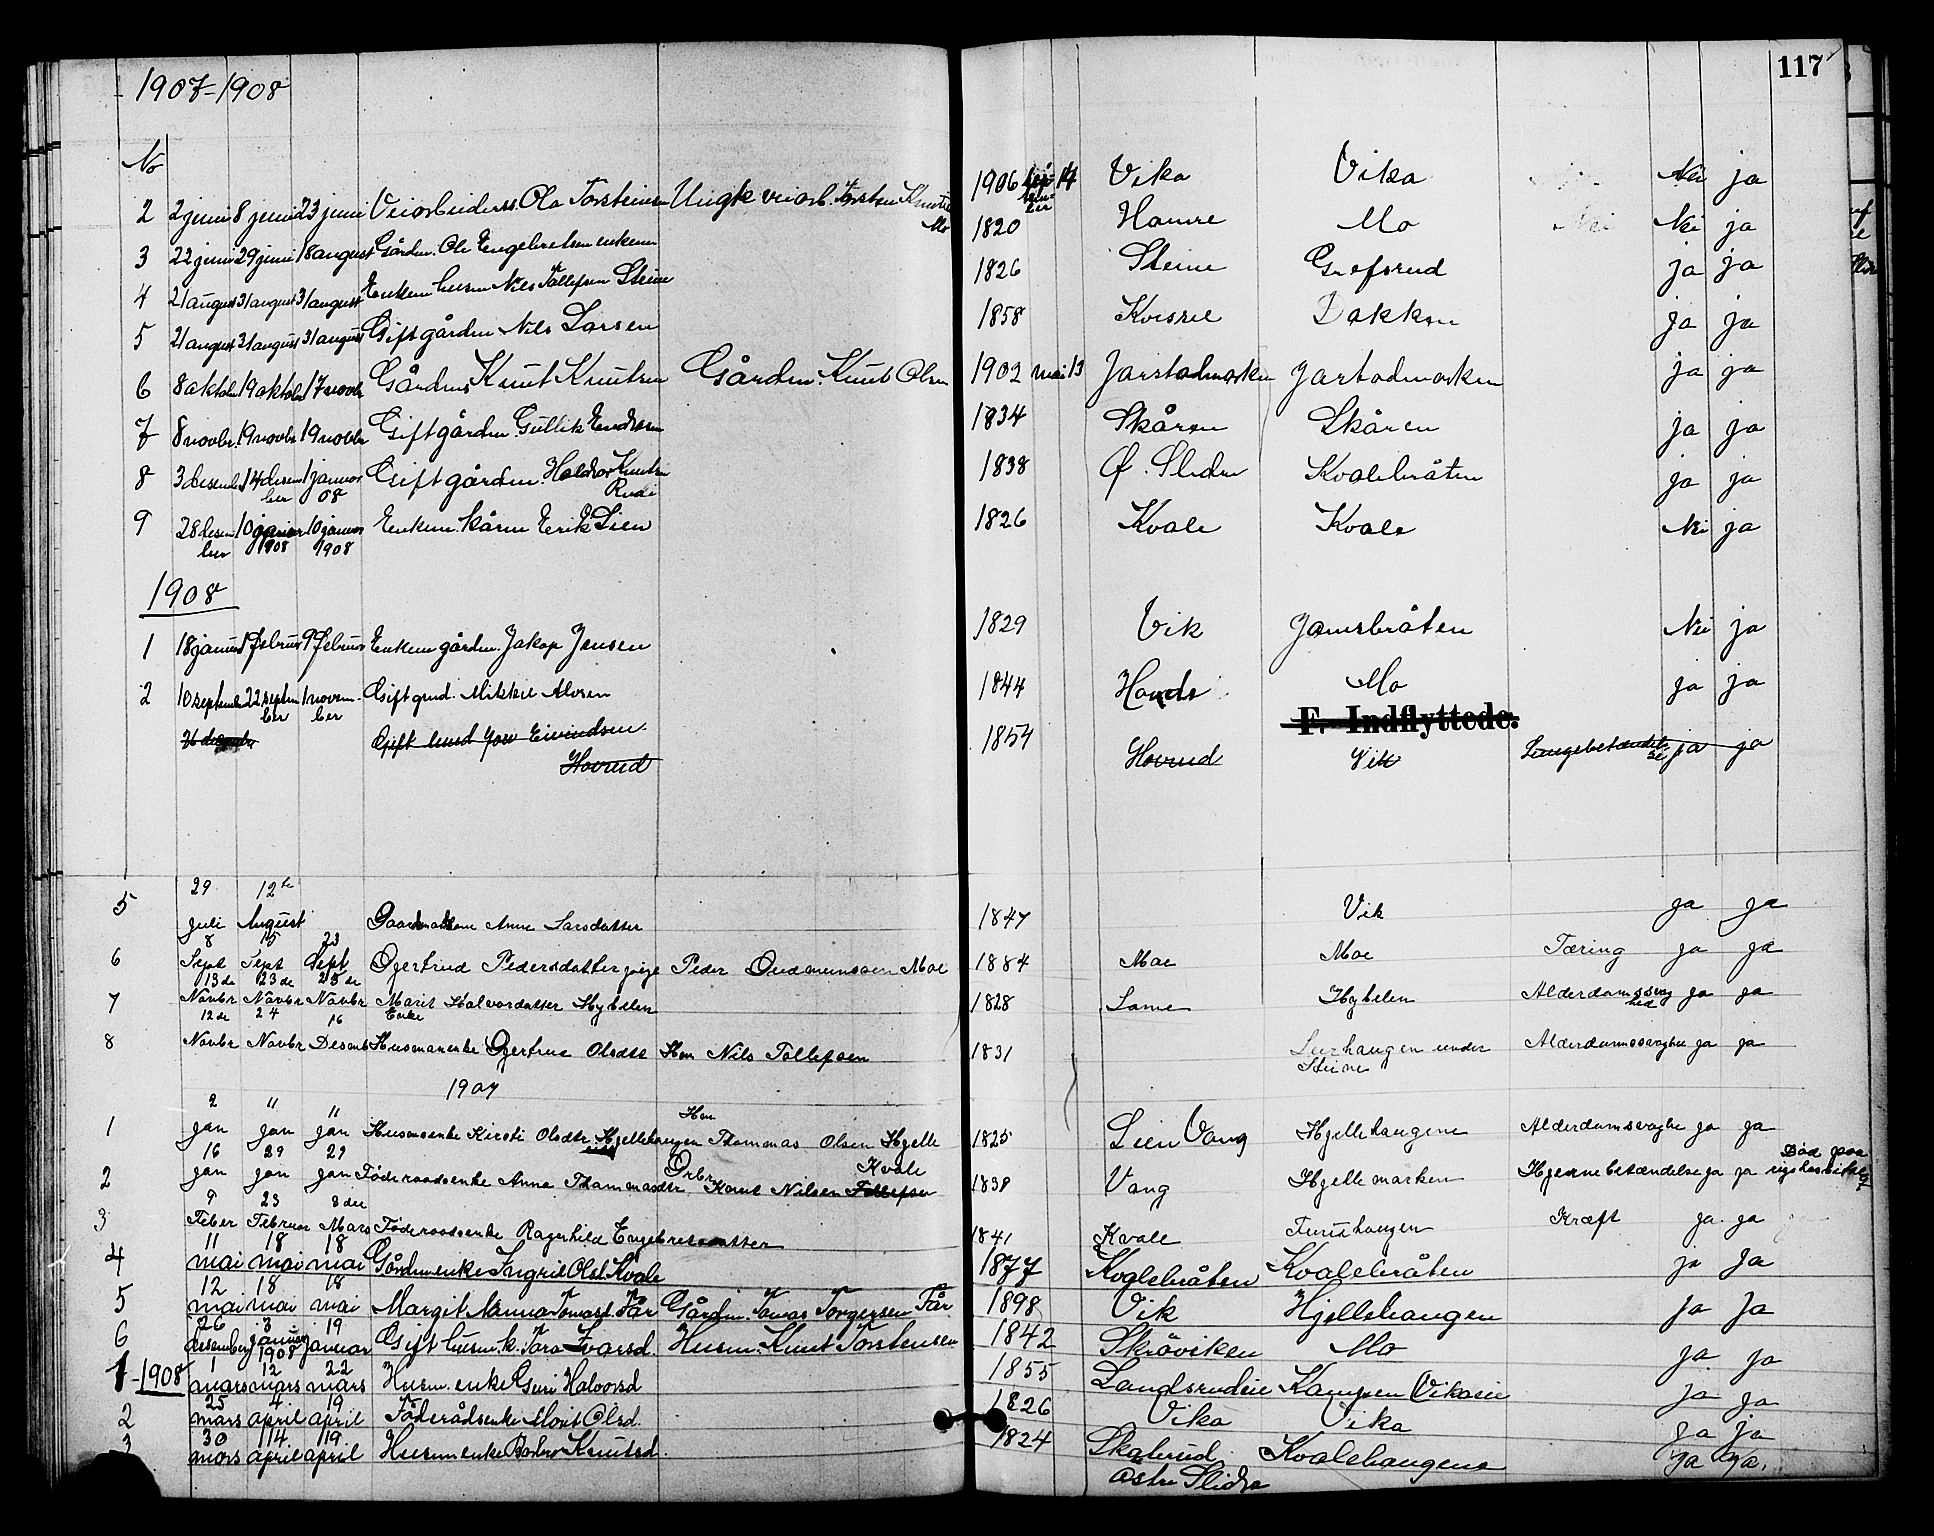 1907-1908
117
No
2 2 juni 8 juni 23 juni Veiarbeiderss. Ola Torsteinsen Ungk veiarb. Torsten Knutsen Mo 1906 september 14 Vika Vika Nei ja
3 22 juni 29 juni 18 august Gårdm. Ole Engebretsen enkem 1820 Hamre Mo Nei Nei ja
4 21 august 31 august 31 august Enkem husm Nils Tollefsen Steine 1826 Steine Grefsrud ja ja
5 21 august 31 august 31 august Gift gårdm Nils Larsen 1858 Bakken ja ja
6 8 oktober 19 oktober 17 novbr Gårdms Knut Knutsen Gårdm. Knut Olsen 1902 mai 13 Jarstadmarken Jarstadmarken ja ja
7 8 novbr. 19 novbr 19 novbr Gift gårdm. Gullik Endresen 1834 Skåren Skåren ja ja
8 3 desember 14 desember 1 januar 08 Gift gårdm. Haldvor Knutsen Rudi 1838 Ø. Slidre Kvalebråten ja ja
9 28 desember 10 januar 1908 10 januar 1908 Enkem. kårm Erik Lien 1826 Kvale Kvale Nei ja
1908
1 18 januar 1 februar 9 februar Enkem gårdm. Jakop Jensen 1829 Vik Jamsbråten Nei ja
2 10 september 22 september 1 november Gift grud. Mikkel Alvsen 1844 Mo ja ja
F. Indflyttede.
Gift husmd Jon Eivindsen Hovrud 1854 Hovrud Vik Lungebetændelse ja ja
5 29 juli 12te August Gaardmakone Anne Larsdatter 1847 Vik ja ja
6 8 Sept 15 Sept 23 Sept Gjertrud Pedersdatter pige Peder Gudmundsen Moe 1884 Moe Moe Tæring ja ja
7 13de Novbr 23de Novbr 25de Novbr Marit Halvordatter Hybelen Enke 1828 Same Hybelen Alderdomssvaghed ja ja
8 12de Novbr 24 Novbr 16 Desemb Husmanenke Gjertrud Olsdtr Hm Nils Tollefsen 1831 under Steine Alderdomssvaghe ja ja
1907
1 2 jan 11 jan 11 jan Husmsenke Kirsti Olsdtr Hjellehaugen Hm Thommas Olsen Hjelle 1825 Lien Vang Hjellehaugene Alderdomsvaghe ja ja
2 16 jan 29 jan 29 jan Föderaadsenke Anne Thommasdtr Grbr Knut Nilsen Kvale 1838 Vang Hjellemarken Hjernebetændelse ja ja Död paa rigshospitalet
3 9 Feber 23 Februar 3die Mars Föderaadsenke Ragnhild Engebretsdatter 1841 Kvale Kræft ja ja
4 11 mai 18 mai 18 mai Gårdm enke Ingrid Olsd Kvale 1877 Kvalebråten Kvalebråten ja ja
5 12 mai 18 mai 18 mai Margit Nanna Tomasd. Får Gårdm. Tomas Torgersen Får 1898 Vik Hjellehaugen ja ja
6 26 desember 3 januar 1908 19 januar Gift husm. k. Tora Ivarsd. Husm. Knut Torstensen 1842 Skröviken Mo ja ja
1-1908 1 mars 12 mars 22 mars Husm. enke Guri Halvorsd 1855 Kampen Vikasin ja ja
2 25 mars 4 april 19 april Föderådsenke Marit Olsd. 1826 Vika Vika ja ja
3 30 mars 14 april 19 april Husm enke Barbro Knutsd. 1824 Skaterud Östre Slidre Kvalehaugene ja ja.